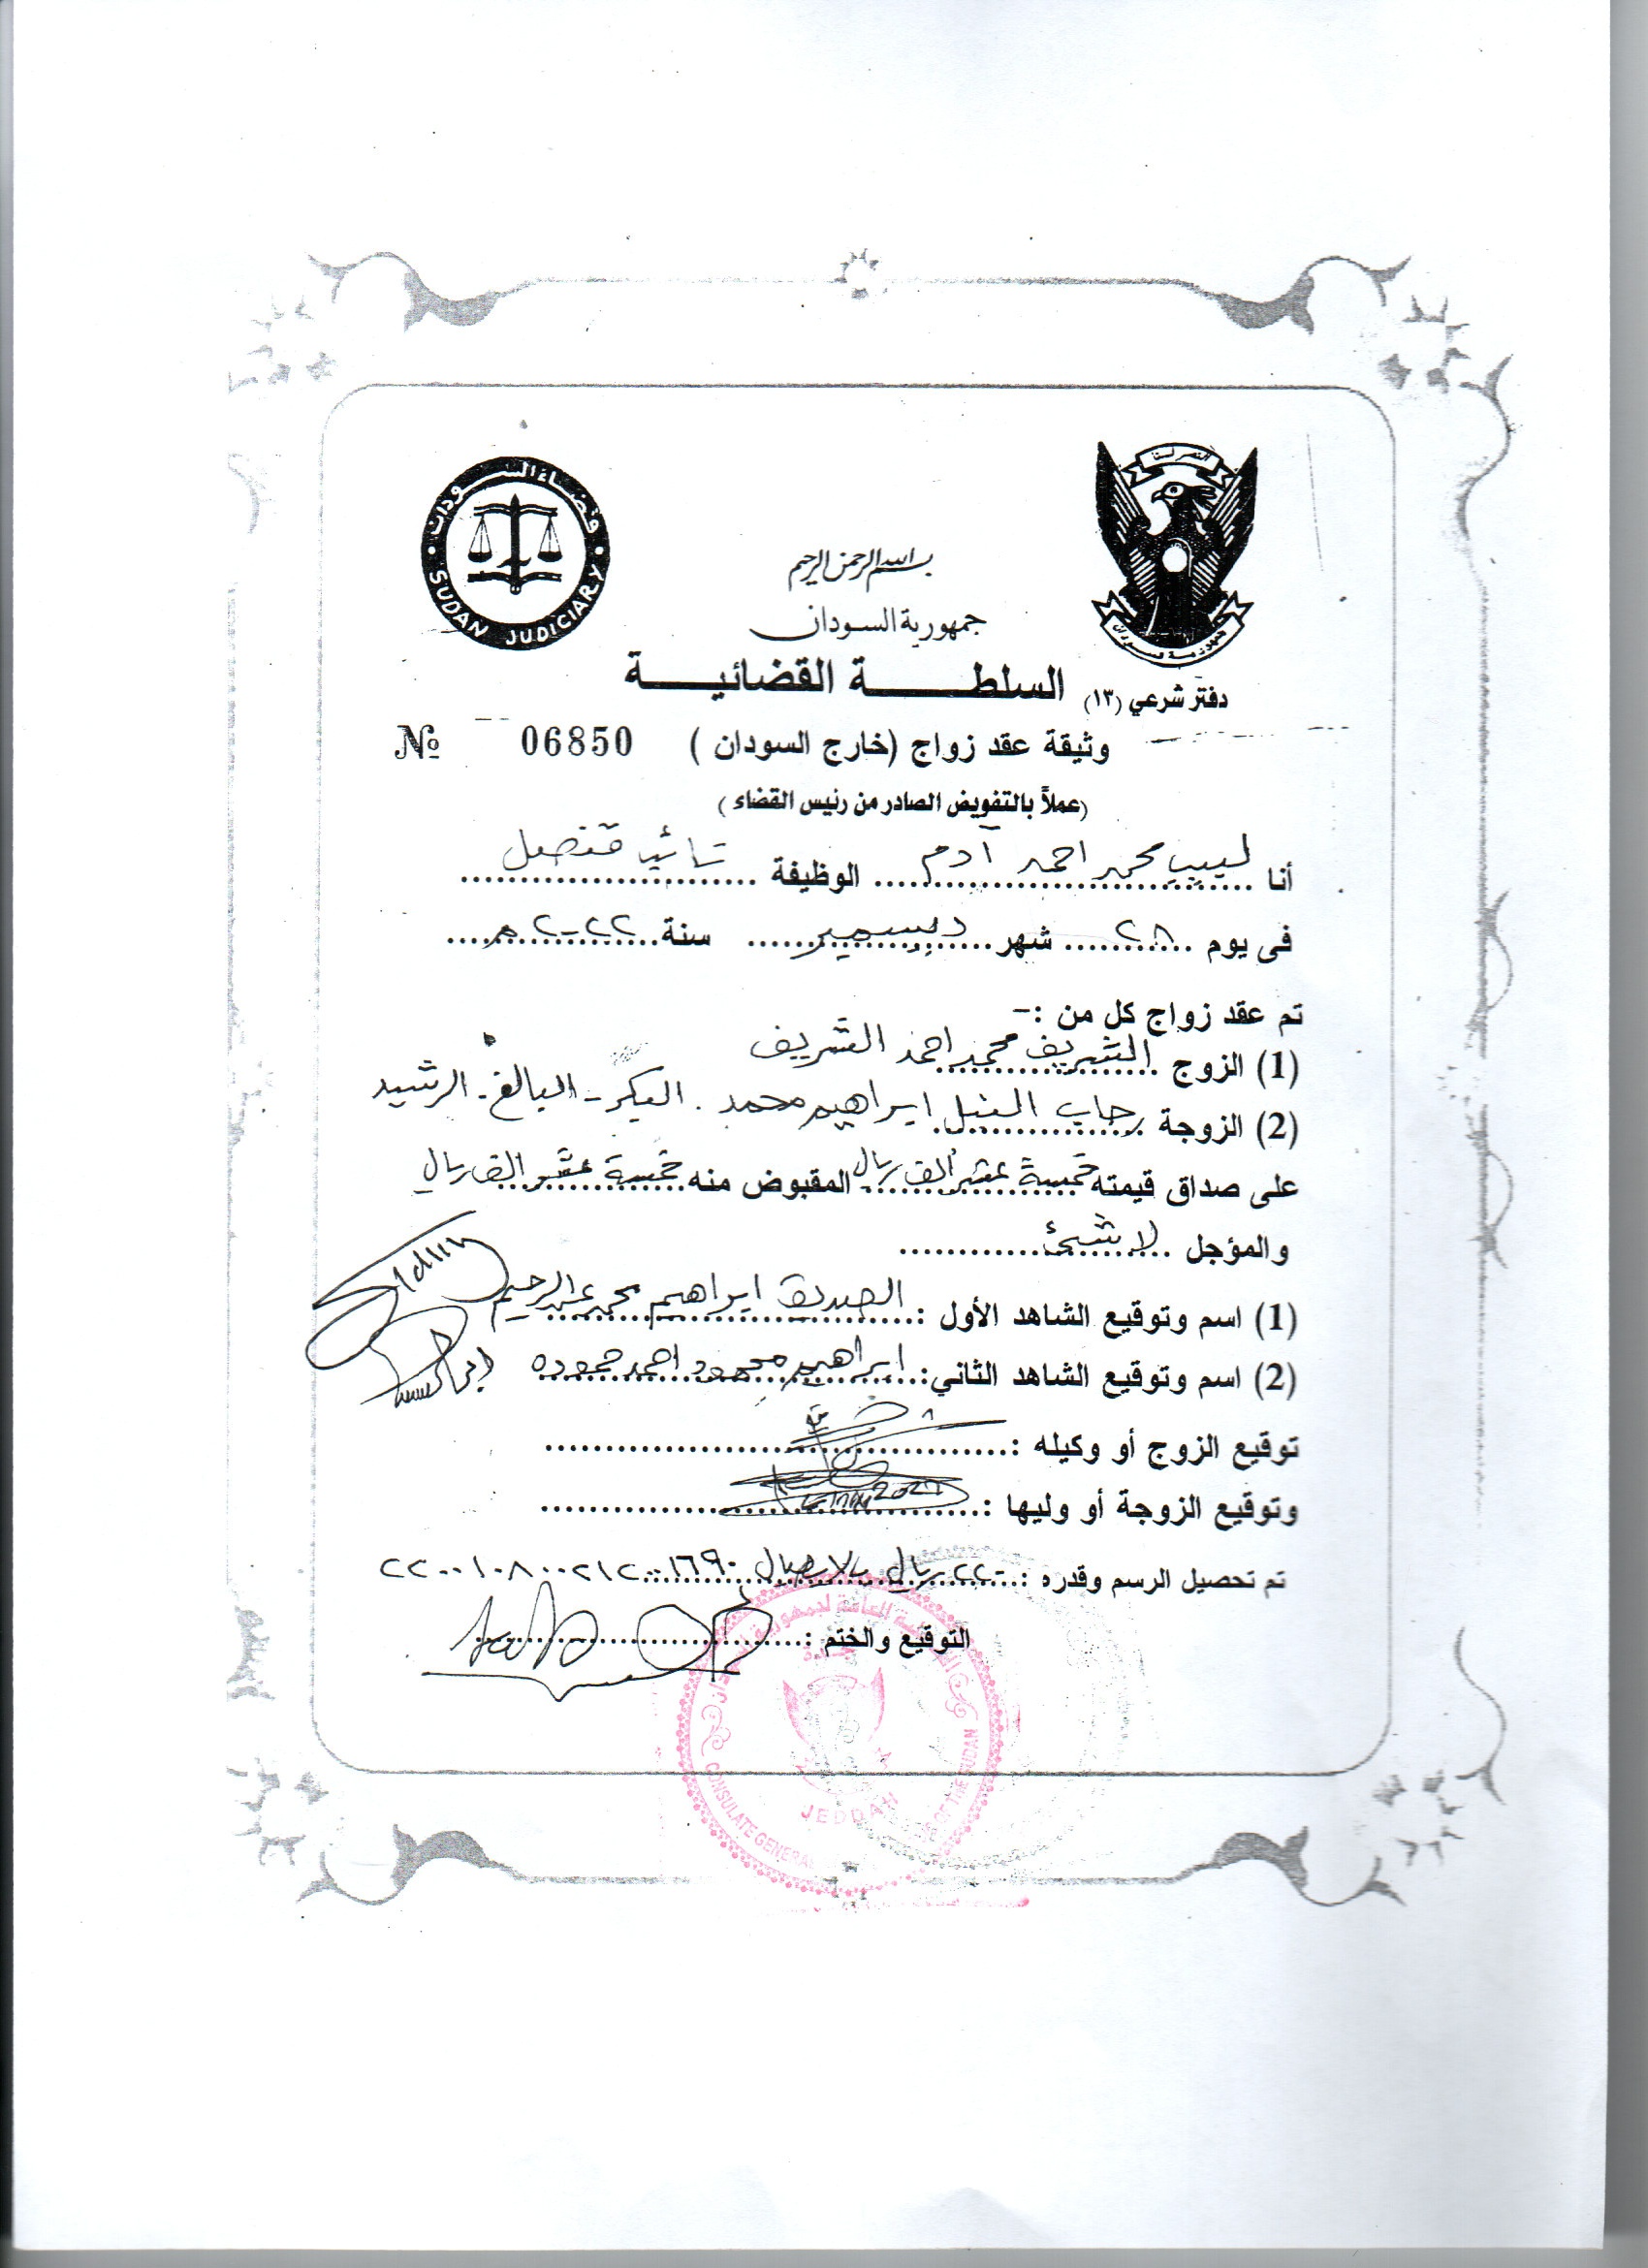 النصر لنا
جمهورية السودان
قضاء السودان
SUDAN JUDICIARY
بسم الله الرحمن الرحيم
جمهورية السودان
السلطة القضائية
دفتر شرعي (١٣)
وثيقة عقد زواج (خارج السودان )
№ 06850
(عملاً بالتفويض الصادر من رئيس القضاء )
أنا لبيب محمد احمد آدم الوظيفة نائب قنصل
فى يوم ٢٨ شهر ديسمبر سنة ٢٠٢٢م
تم عقد زواج كل من :-
(1) الزوج الشريف محمد احمد الشريف
(2) الزوجة رحاب ابراهيم محمد . البكر - البالغ - الرشيد
على صداق قيمته خمسة عشر الف ريال المقبوض منه خمسة عشر الف ريال
والمؤجل لا شئ
(1) اسم وتوقيع الشاهد الأول : الصديق ابراهيم محمد عبدالرحيم
(2) اسم وتوقيع الشاهد الثاني: ابراهيم محمود احمد حموده
توقيع الزوج أو وكيله :
وتوقيع الزوجة أو وليها :
تم تحصيل الرسم وقدره : ٢٢٠ ريال بالايصال
التوقيع والختم :
القنصلية العامة لجمهورية السودان
جدة
JEDDAH
CONSULATE GENERAL OF THE SUDAN